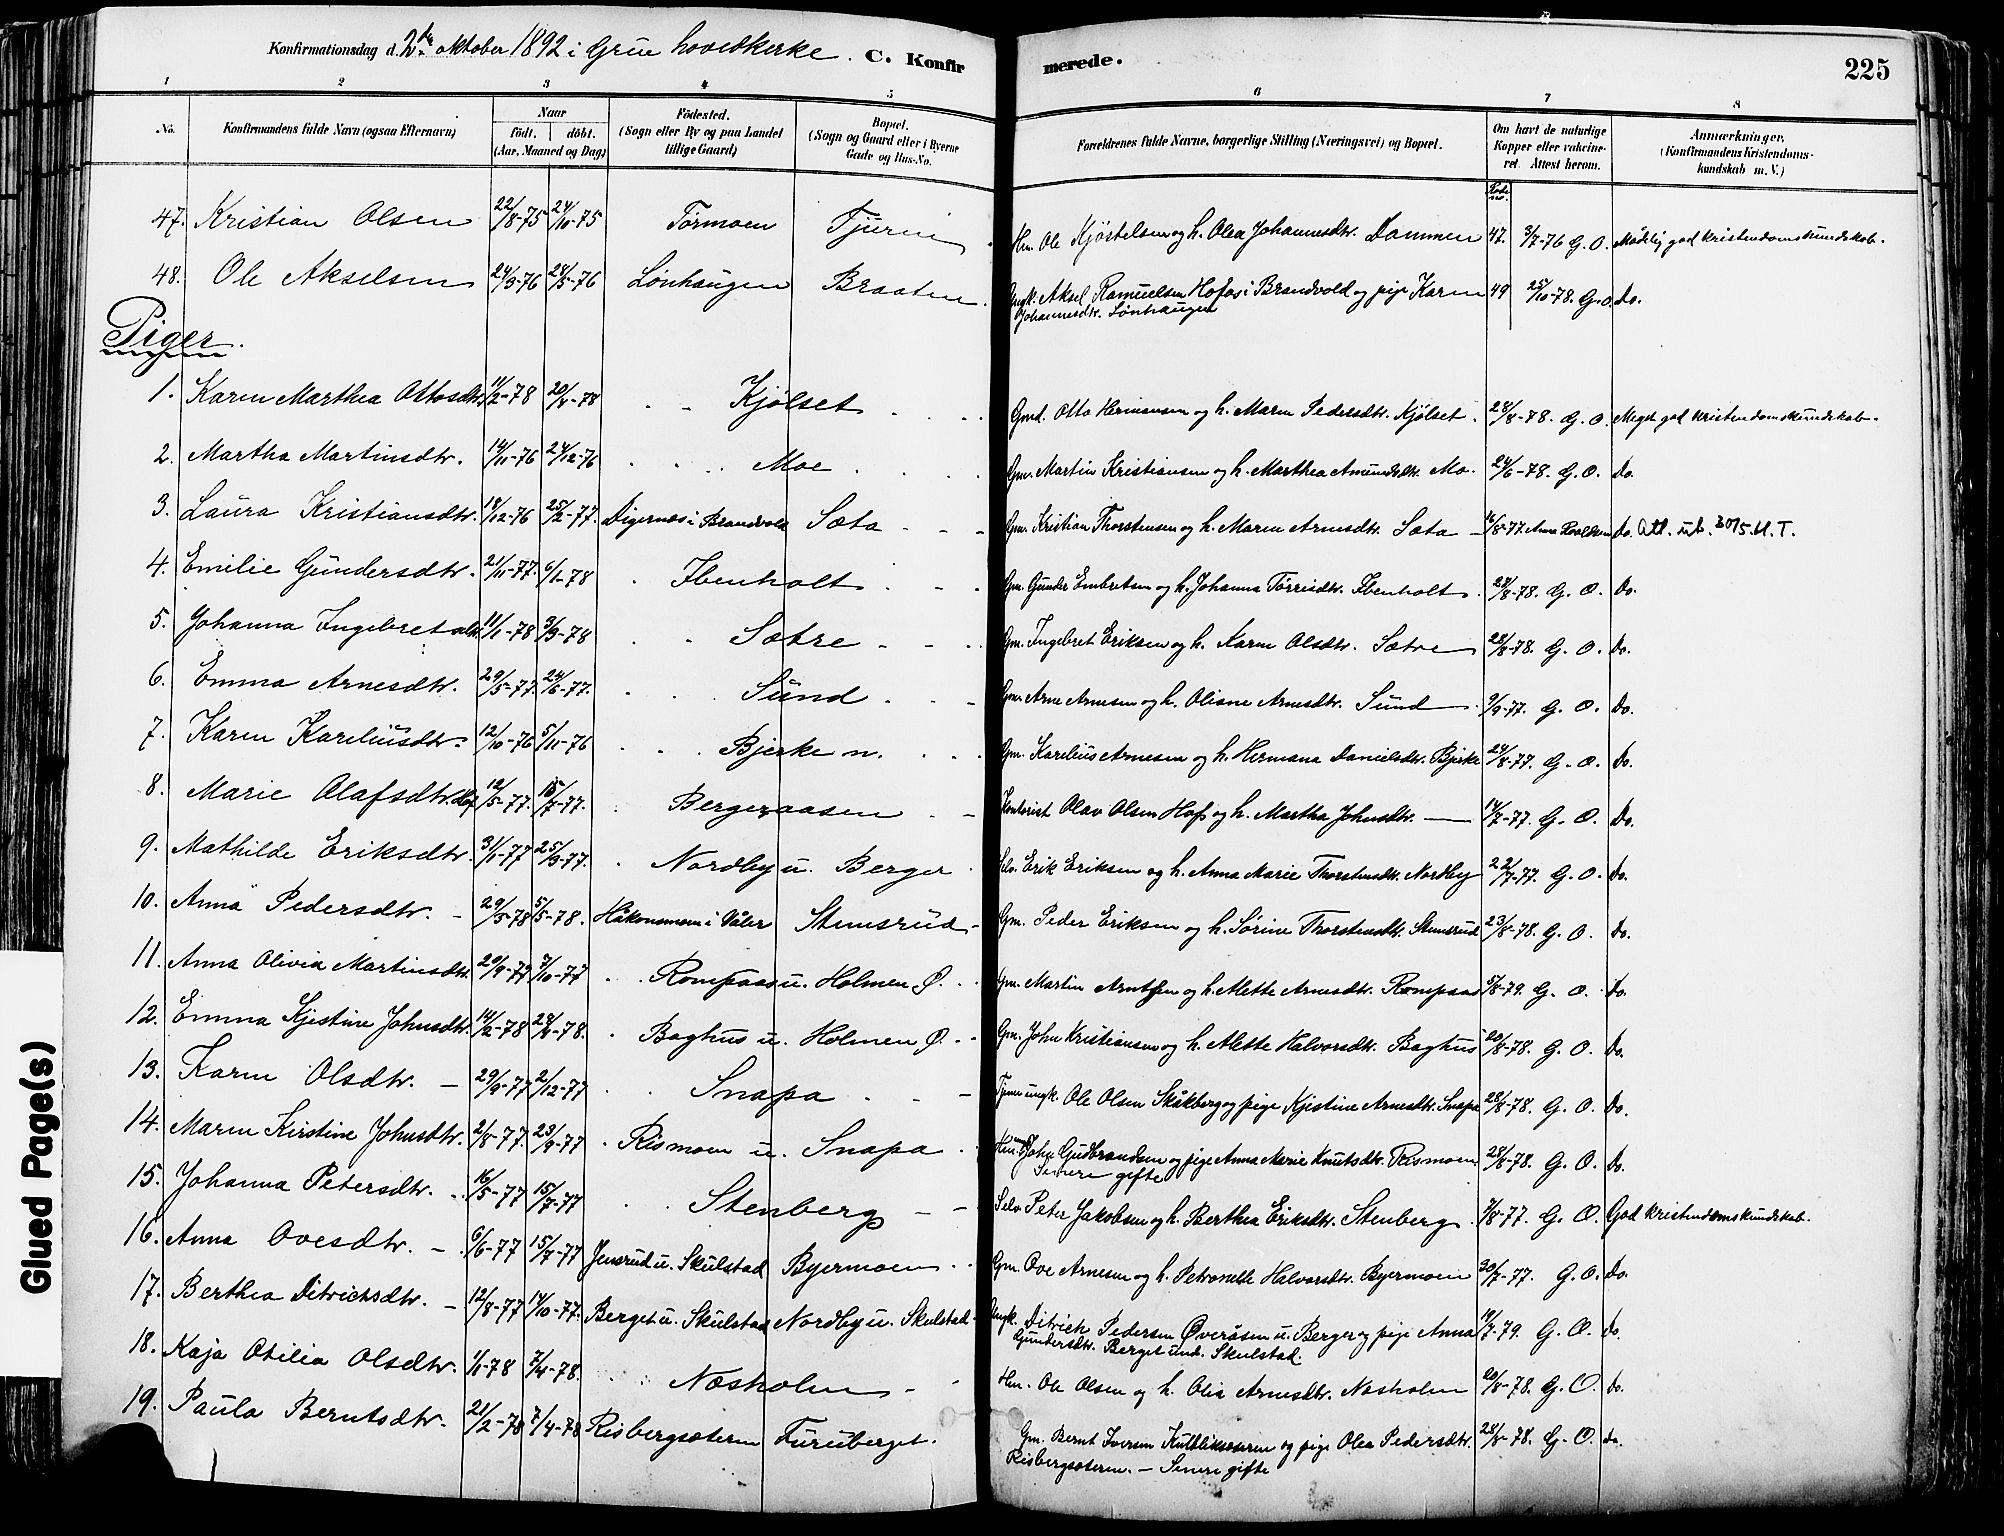 Konfirmationsdag d. 2den oktober 1892 i Grue hovedkirke. C. Konfirmerede. 225
1 2 3 4 5 6 7 8
No. Konfirmandens fulde Navn (ogsaa Efternavn) Naar født. døbt. (Aar, Maaned og Dag) Fødested. (Sogn eller By og paa Landet tillige Gaard) Bopæl. (Sogn og Gaard eller i Byerne Gade og Hus-No. Forældrenes fulde Navne, borgerlige Stilling (Næringsvei) og Bopæl. Om havt de naturlige Kopper eller vakcineret. Attest herom. Anmærkninger. (Konfirmandens Kristendomskundskab m. V.)
47. Kristian Olsen 22/8-75 24/10-75 Tørmoen Tjurin Hm. Ole Kjøstelsen og h. Olea Johannesdtr. Dammen 47. 3/7-76 G. O. Mådelig god kristendomskundskab.
48. Ole Akselsen 24/3-76 28/5-76 Lønhaugen Braaten Ungk. Aksel Hofos i Brandvold og pige Karen Johannesdtr. Lønhaugen 49 25/10-78. G. O. Do.
Piger.
1. Karen Marthea Ottosdtr. 11/2-78 20/4-78 Kjølset Gmd. Otto Hermansen og h. Maren Pedersdtr. Kjølset. 28/8-78. G. O. Meget god kristendomskundskab.
2. Martha Martinsdtr. 14/11-76 24/12-76 Moe Gm. Martin Kristiansen og h. Marthea Amundsdtr. Mo. 24/6-78. G. O. Do.
3. Laura Kristiansdtr. 18/12-76 25/2-77. Digernes i Brandvold Sæta Gm. Kristian Thorstensen og h. Maren Arnesdtr. Sæta 16/8-77. Do. Att. ut. 30/5.41. T.
4. Emilie Gundersdtr. 21/11-77. 6/1-78 Ibenholt Gm. Gunder Embretsen og h. Johanna Tørrisdtr. Ibenholt. 28/8-78. G. O. Do.
5. Johanna Ingebretsdtr. 11/1-78 3/3-78 Sætre Gm. Ingebret Eriksen og h. Karen Olsdtr. Sætre 28/8-78. G. O. Do.
6. Emma Arnesdtr. 29/5-77. 24/6-77. Sund Gm. Arne Arnesen og h. Olisne Arnesdtr. Sund 9/9-77. G. O. Do.
7. Karen Kareliusdtr. 12/10-76 5/11-76 Bjerke n. Gm. Karelius Arnesen og h. Hermana Danielsdtr. Bjerke 24/8-77. G. O. Do.
8. Marie Olafsdtr. Hof 12/5-77. 15/7-77. Bergeraasen Kontorist Olav Olsen Hof og h. Martha Johnsdtr. 14/7-77. G. O. Do.
9. Mathilde Eriksdtr. 31/1-77 25/3-77. Nordby u. Berger Selv. Erik Eriksen og h. Anna Marie Thorstensdtr. Nordby 22/7-77. G. O. Do.
10. Anna Pedersdtr. 29/3-78 5/5-78. Håkonsmoen i Våler Stemsrud Gm. Peder Eriksen og h. Sørine Thorstensdtr. Stemsrud 23/8-78. G. O. Do.
11. Anna Olivia Martinsdtr. 20/9-77 7/10-77 Rompaas u. Holmen Ø. Gm. Martin Arntsen og h. Alette Arnesdtr. Rompaas 5/8-79. G. O. Do.
12. Emma Kjestine Johnsdtr. 14/2-78 28/4-78. Baghus u. Holmen Ø. Gm. John Kristiansen og h. Alette Halvorsdtr. Baghus 20/8-78. G. O. Do.
13. Karen Olsdtr. 29/9-77 2/12-77 Snapa Tjener ungk. Ole Olsen Skåkberg og pige Kjestine Arnesdtr. Snapa 28/8-78. G. O. Do.
14. Maren Kirstine Johnsdtr. 2/8-77. 23/9-77 Rismoen u. Snapa Hm. John Gudbrandsen og pige Anna Marie Knutsdtr. Rismoen. Senere gifte 28/8-78. G. O. Do.
15. Johanna Petersdtr. 16/5-77 15/7-77 Stenberg Selv. Peter Jakobsen og h. Berthea Eriksdtr. Stenberg. 7/8-77. G. O. God kristendomskundskab.
16. Anna Ovesdtr. 6/6-77 15/7-77 Jensrud u. Skulstad Byermoen Gm. Ove Arnesen og h. Petronelle Halvorsdtr. Byermoen 30/7-77. G. O. Do.
17. Berthea Ditrichsdtr. 12/8-77 14/10-77. Berget u. Skulstad Nordby u. Skulstad Ungk. Ditrich Pedersen Øveråsen u. Berger og pige Anna Gundersdtr. Berget und. Skulstad. 18/7-79. G. O. Do.
18. Kaja Otilia Olsdtr. 1/1-78 7/4-78. Næsholen Hm. Ole Olsen og h. Olia Arnesdtr. Næsholen 20/8-78. G. O. Do.
19. Paula Berntsdtr. 21/2-78 7/4-78 Risbergsæteren Furuberget. Gm. Bernt Iversen Kulbliksæteren og pige Olea Pedersdtr. Risbergsæteren. - Senere gifte 28/8-78. G. O. Do.
Glued Page(s)